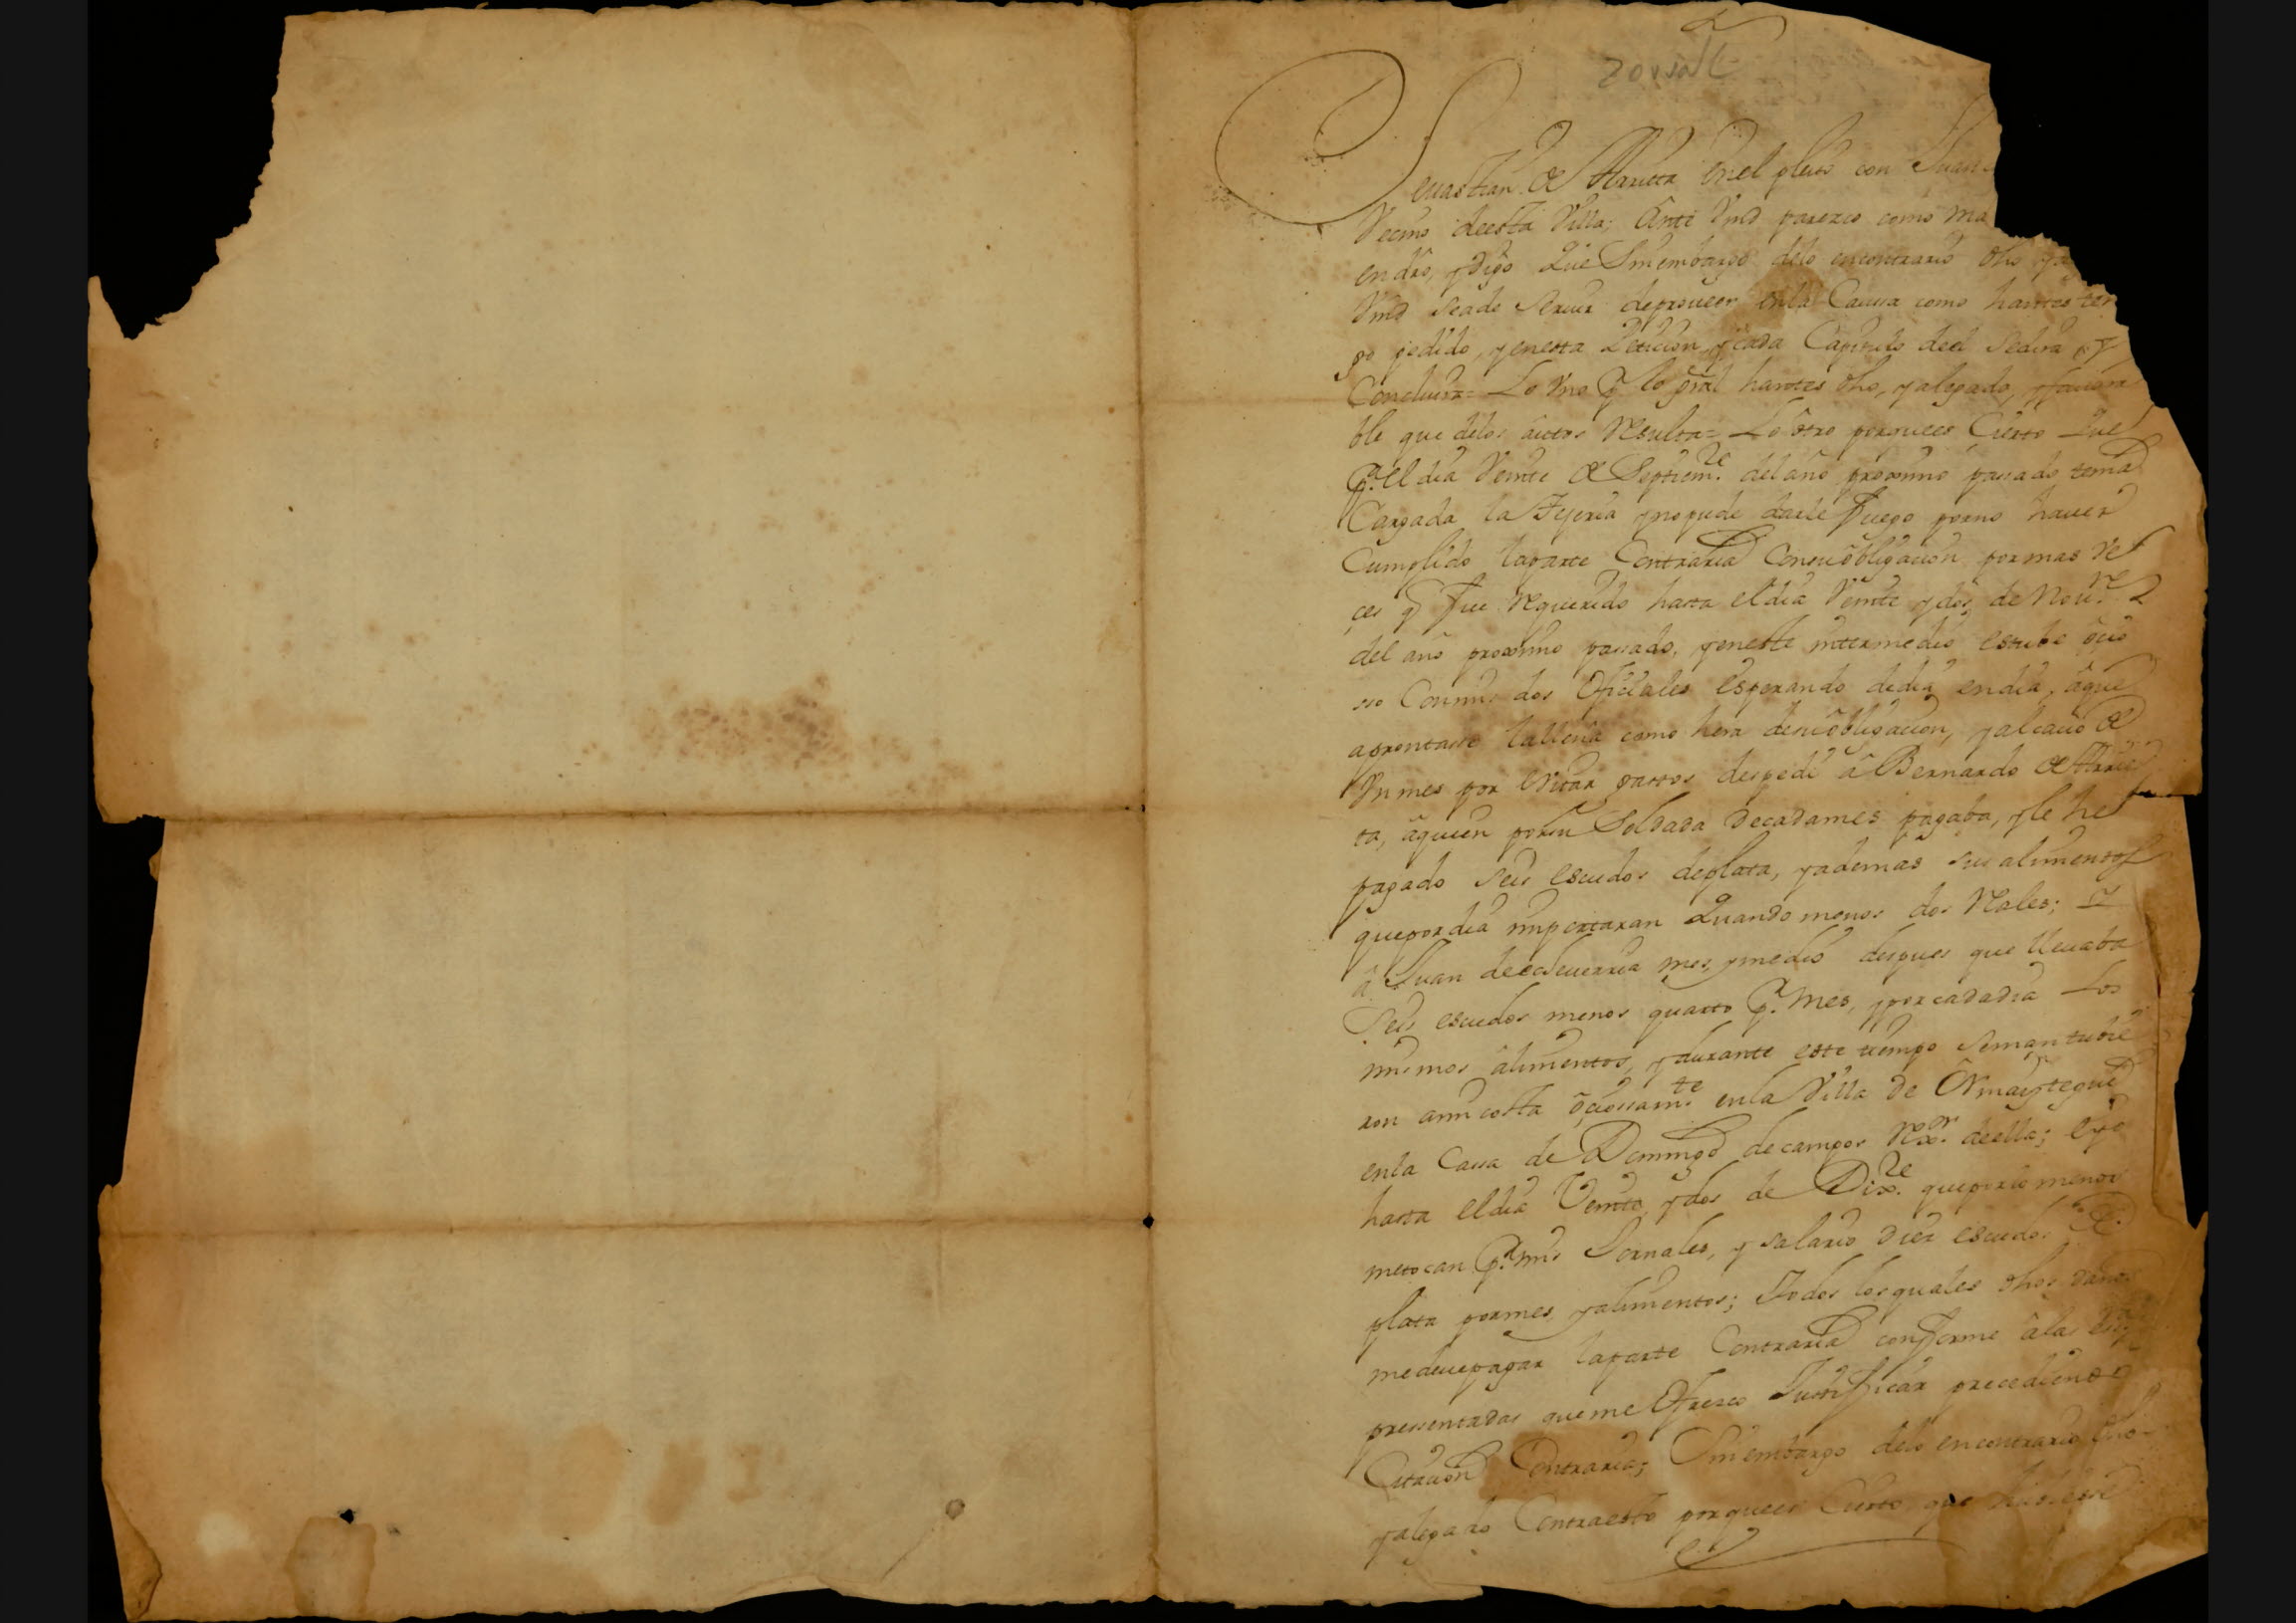 Sevastian de Arrieta en el pleito con Juan
Vecino deesta Villa; Ante Vmd parezco como ma
en dro, y digo Que Sinembargo delo encontrario dho
Vmd seade Servir deproueer enla Caussa como hantes ten
go pedido, y enesta Peticion, y cada Capitulo deel Sedira y
Concluira = Lo Vno Por lo gral hantes dho, y alegado, y fauora
ble que delos autos Resulta = Lo otro porquees Cierto que
Pa. el dia Veinte de Septiemre. del año proximo passado tenia
Cargada la Tejeria ynopude darle fuego porno hauer
Cumplido laparte Contraria Consuobligacion pormas Ve
çes q fue Requerido hasta eldia Veinte ydos de Noure.
del año proximo passado, yeneste intermedio estube ocio
so Conmis dos Oficiales esperando dedia endia, aque
aprontasse laleña como hera desuobligacion, yalcauo de
Vnmes por Evitar gastos despedi a Bernardo de Arrie
ta, aquien porsu Soldada decadames pagaba, yle he
pagado seis escudos deplata, yademas sus alimentos
quepordia importaran Quando menos dos Reales; Y
a Juan deecheuerria mes, ymedio despues que lleuaba
Seis escudos menos quarto Pr. mes, yporcadadia Los
mismos alimentos, ydurante este tiempo semantubie
ron amicosta ociossamte. enla Villa de Ormaiztegui
enla Cassa de Domingo decampos Rexor. deella; e yo
hasta eldia Veinte, ydos de Dixre. queporlo menos
metocan Pr. mis Jornales, y salario diez escudos de
plata pormes, yalimentos; Todos losquales dhos daños
medeuepagar laparte Contraria conforme alas
pressentadas queme Ofrezco Justificar precediendo
Citacion Contraria; Sinembargo delo encontrario dho
yalegado Contraesto porquees Cierto que